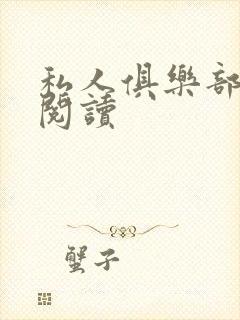 私人俱樂部
閱讀
蟹子